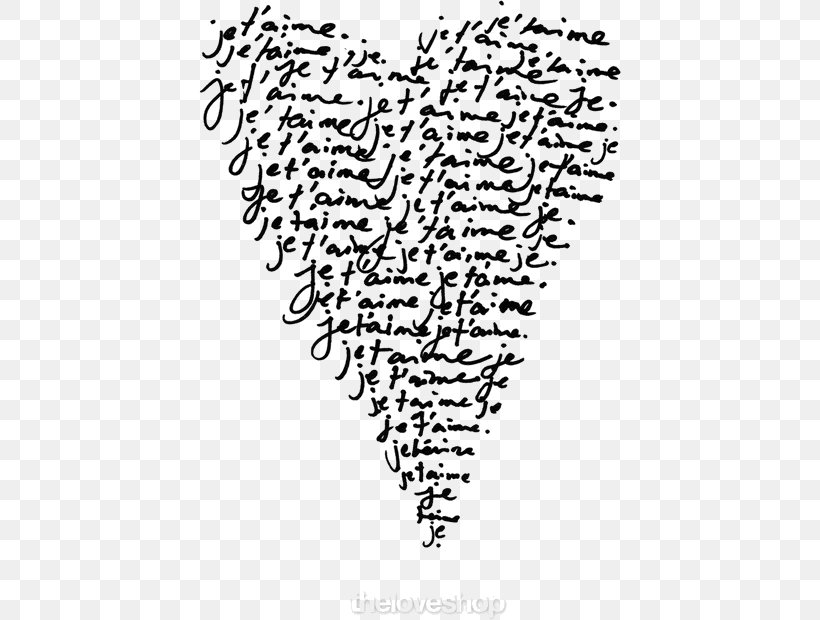 je t'aime. je t'aime
je t'aime, je. je t'aime
je t'aime je t'aime je t'aime
je t'aime. je t'aime je.
je t'aime je t'aime je t'aime.
je t'aime je t'aime je t'aime je
je t'aime. je t'aime je t'aime
je t'aime je t'aime je t'aime
je t'aime je t'aime je.
je taime je t'aime je.
je t'aime je t'aime je.
je t'aime je t'aime.
je t'aime je t'aime
je t'aime je t'aime.
je taime je
je t'aime je
je taime je
je t'aime.
je taime
je
taime
je
theloveshop